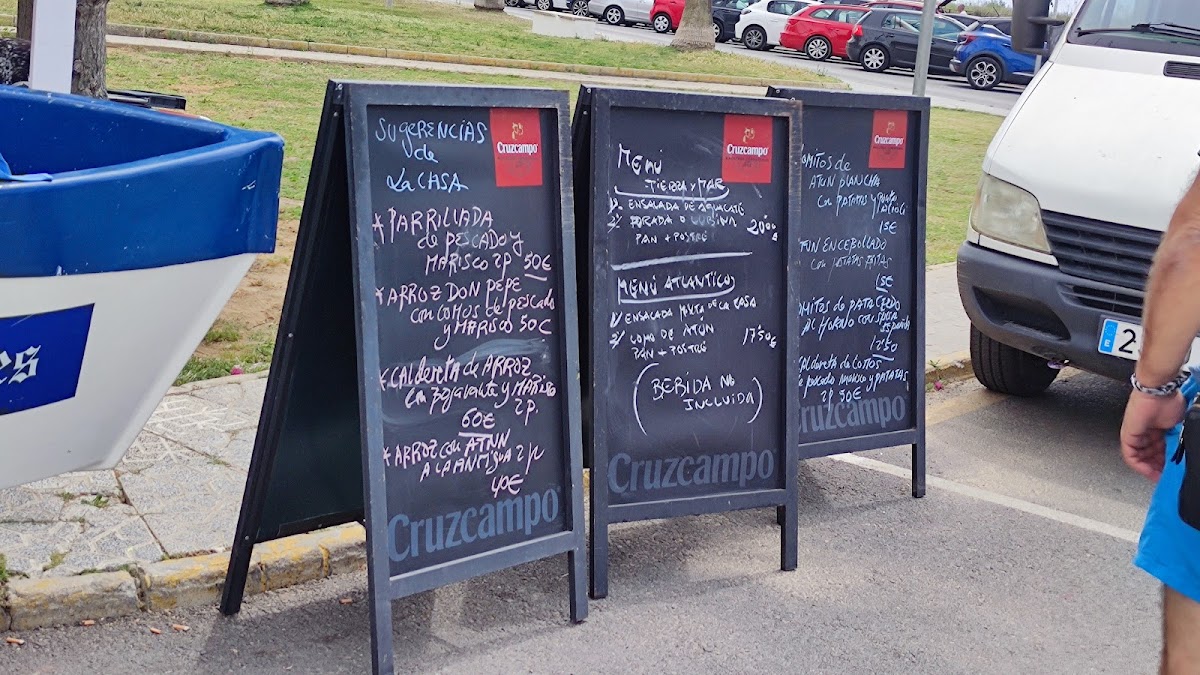 Sugerencias
de
La CASA
Cruzcampo
* PARRILLADA
de pescado y
MARISCO 2P 50€
* ARROZ DON PEPE
con LOMOS de pescado
y MARISCO 50€
* CALDERETA de ARROZ
con bogavante y MARISCO
2P.
60€
* ARROZ con ATUN
A LA ANTIGUA 2P
40€
Cruzcampo
MENÚ
TIERRA Y MAR
Cruzcampo
1º ENSALADA DE AGUACATE
2º
PAN + POSTRE
20'00
MENÚ ATLANTICO
1º ENSALADA MIXTA DE LA CASA
2º LOMO DE ATÚN
PAN + POSTRE
17'50€
(BEBIDA NO
INCLUIDA)
Cruzcampo
OMITOS de
Cruzcampo
ATUN PLANCHA
con PATATAS y
15€
TUN ENCEBOLLADO
con PATATAS FRITAS
15€
OMITOS de PATA CERDO
AL HORNO con
12'50
Caldereta de LOMOS
de pescado MARISCO y PATATAS
2P 50€
Cruzcampo
es
E
2